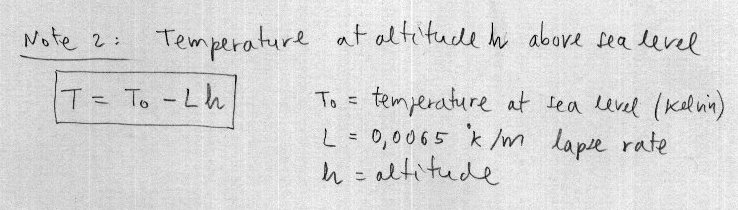 Note 2: Temperature at altitude h above sea level
T = T₀ - Lh
T₀ = temperature at sea level (kelvin)
L = 0,0065 °k/m lapse rate
h = altitude